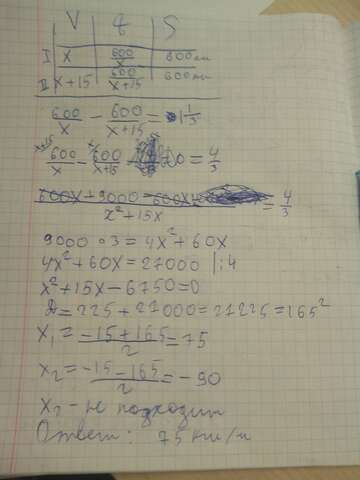 V t S
I x 600/x 600км
II x+15 600/x+15 600км
600/x - 600/x+15 = 1 1/3
600/x - 600/x+15 = 4/3
600x + 9000 - 600x / x²+15x = 4/3
9000 • 3 = 4x² + 60x
4x² + 60x = 27000 | :4
x² + 15x - 6750 = 0
D = 225 + 27000 = 27225 = 165²
x₁ = -15+165/2 = 75
x₂ = -15-165/2 = -90
x₂ - не подходит
Ответ: 75 км/ч